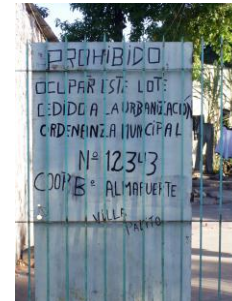 PROHIBIDO
OCUPAR ESTE LOTE
CEDIDO A LA URBANIZACIÓN
ORDENEINZA MUNICIPAL
Nº 12343
COOP Bº ALMAFUERTE
VILLA